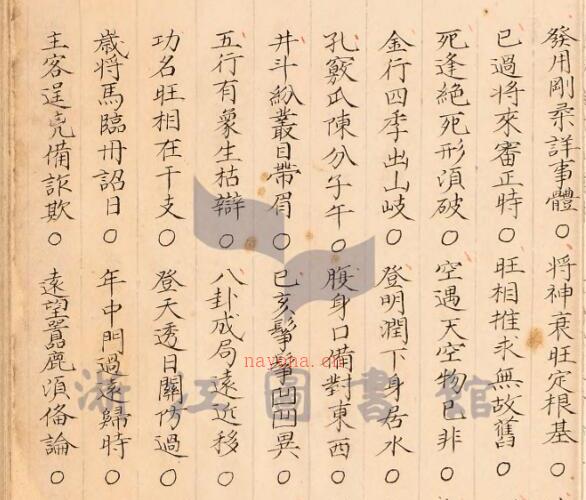 發用剛柔詳事體○將神衰旺定根基○
已過將來審正時○旺相推求無故舊○
死逢絕死形湏破○空遇天空物已非○
金行四季出山岐○登明潤下身居水○
孔竅瓜陳分子午○腹身口備對東西○
井斗紛叢目帶眉○巳亥髼凹凸異○
五行有象生枯辯○八卦成局遠近移○
功名旺相在干支○登天透日關防過○
歲將馬臨冊詔日○年中門過遠歸時○
主客逞亮備詐欺○遠望嚚鹿湏俻論○
nayona.cn
浙江圖書館